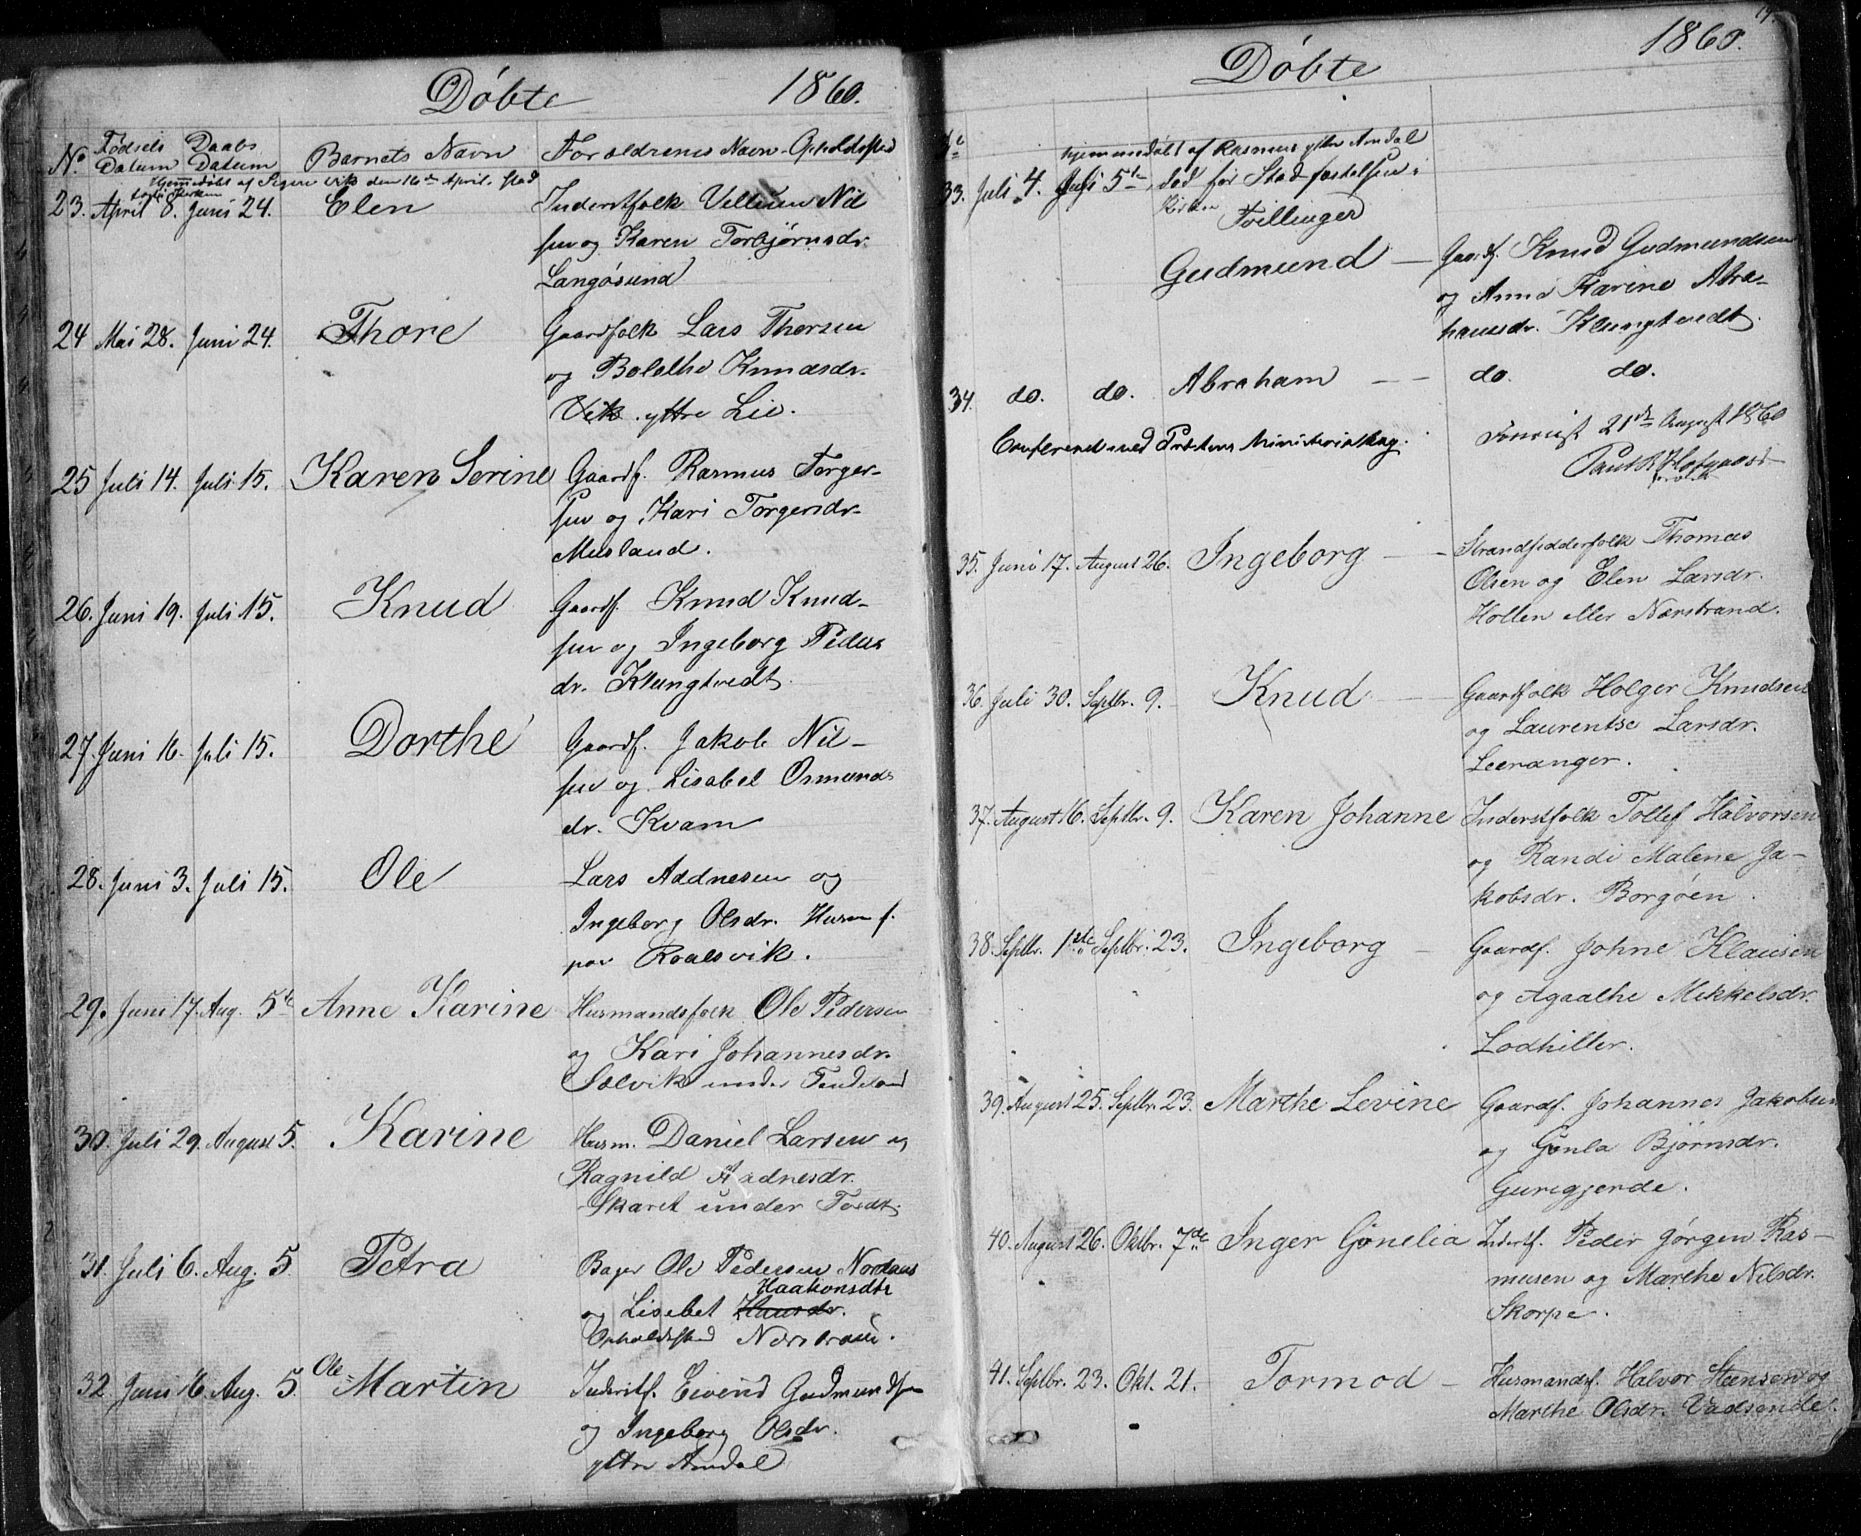 Döbte 1860.
No Fødsels Datum Daabs Datum Barnets Navn Forældrenes Navn Opholdssted
Hjemmedöbt af Sigere Vik den 16de April. stad
i Kirken
23. April 8. Juni 24. Elen Inderstfolk Villum Nil
sen og Karen Torbjørnsdr.
Langøsund
24 Mai 28. Juni 24. Thore Gaardfolk Lars Thorsen
og Bolethe Knudsdr.
Vik yttre Lie.
25 Juli 14. Juli 15. Karen Serine Gaardf. Rasmus Torger-
sen og Kari Torgersdr.
Mesland.
26. Juni 19. Juli 15. Knud Gaardf. Knud Knud-
sen og Ingeborg Peders
dr. Klungtvedt.
27. Juni 16. Juli 15. Dorthe Gaardf. Jakob Nil-
sen og Lisabel Osmunds
dr. Kvam
28. Juni 3. Juli 15. Ole Lars Addnesen og
Ingeborg Olsdr. Husm f.
paa Roalsvik.
29. Juni 17. Aug. 5te Anne Karine Husmandsfolk Ole Pedersen
og Kari Johannesdr.
Solvik under Tendeland
30. Juli 29. August 5. Karine Husm. Daniel Larsen og
Ragnild Aadnesdr.
Skaret under Tvedt.
31. Juli 6. Aug. 5 Petra Bager Ole Pedersen Nordaas
Haakonsdtr
og Lisebet Hansdr.
Opholdssted Nærstrand.
32 Juni 16. Aug. 5. Ole Martin Inderstf. Eivend Gudmundsen
og Ingeborg Olsdr.
yttre Amdal
Döbte 1860.
hjemmedöbt af Rasmus yttre Amdal
33. Juli 4. Juli 5te, död før Stadfæstelsen i
Kirken Tvillinger
Gudmund — Gaardf. Knud Gudmundsen
og Anna Karine Abra-
hamsdr. Klungtvedt.
34. do. do. Abraham — — do. do.
Confereret med Præstens Ministerialbog. 21de August 1860
35. Juni 17. August 26. Ingeborg — Strandsidderfolk Thomas
Olsen og Elen Larsdr.
Hollen eller Nærstrand.
36. Juli 30. Septbr. 9. Knud — Gaardfolk Holger Knudsen
og Laurentse Larsdr.
Leeranger.
37. August 16. Septbr. 9. Karen Johanne Inderstfolk Tollef Halvorsen
og Randi Malene Ja-
kobsdr. Borgöen.
38. Septbr. 1ste Septbr. 23. Ingeborg — Gaardf. Johne Klausen
og Agaathe Mikkelsdr.
Lodhiller.
39. August 25. Septbr. 23. Marthe Levine Gaardf. Johannes Jakobsen
og Gunla Bjørnsdr.
Gurigjerde.
40. August 26. Oktbr. 7de Inger Gønelia Inderstf. Peder Jørgen Ras-
musen og Marthe Nilsdr.
Skorpe.
41. Septbr. 23. Okt. 21. Tormod — Husmandsf. Halvor Steensen og
Marthe Olsdr. Vadsende.